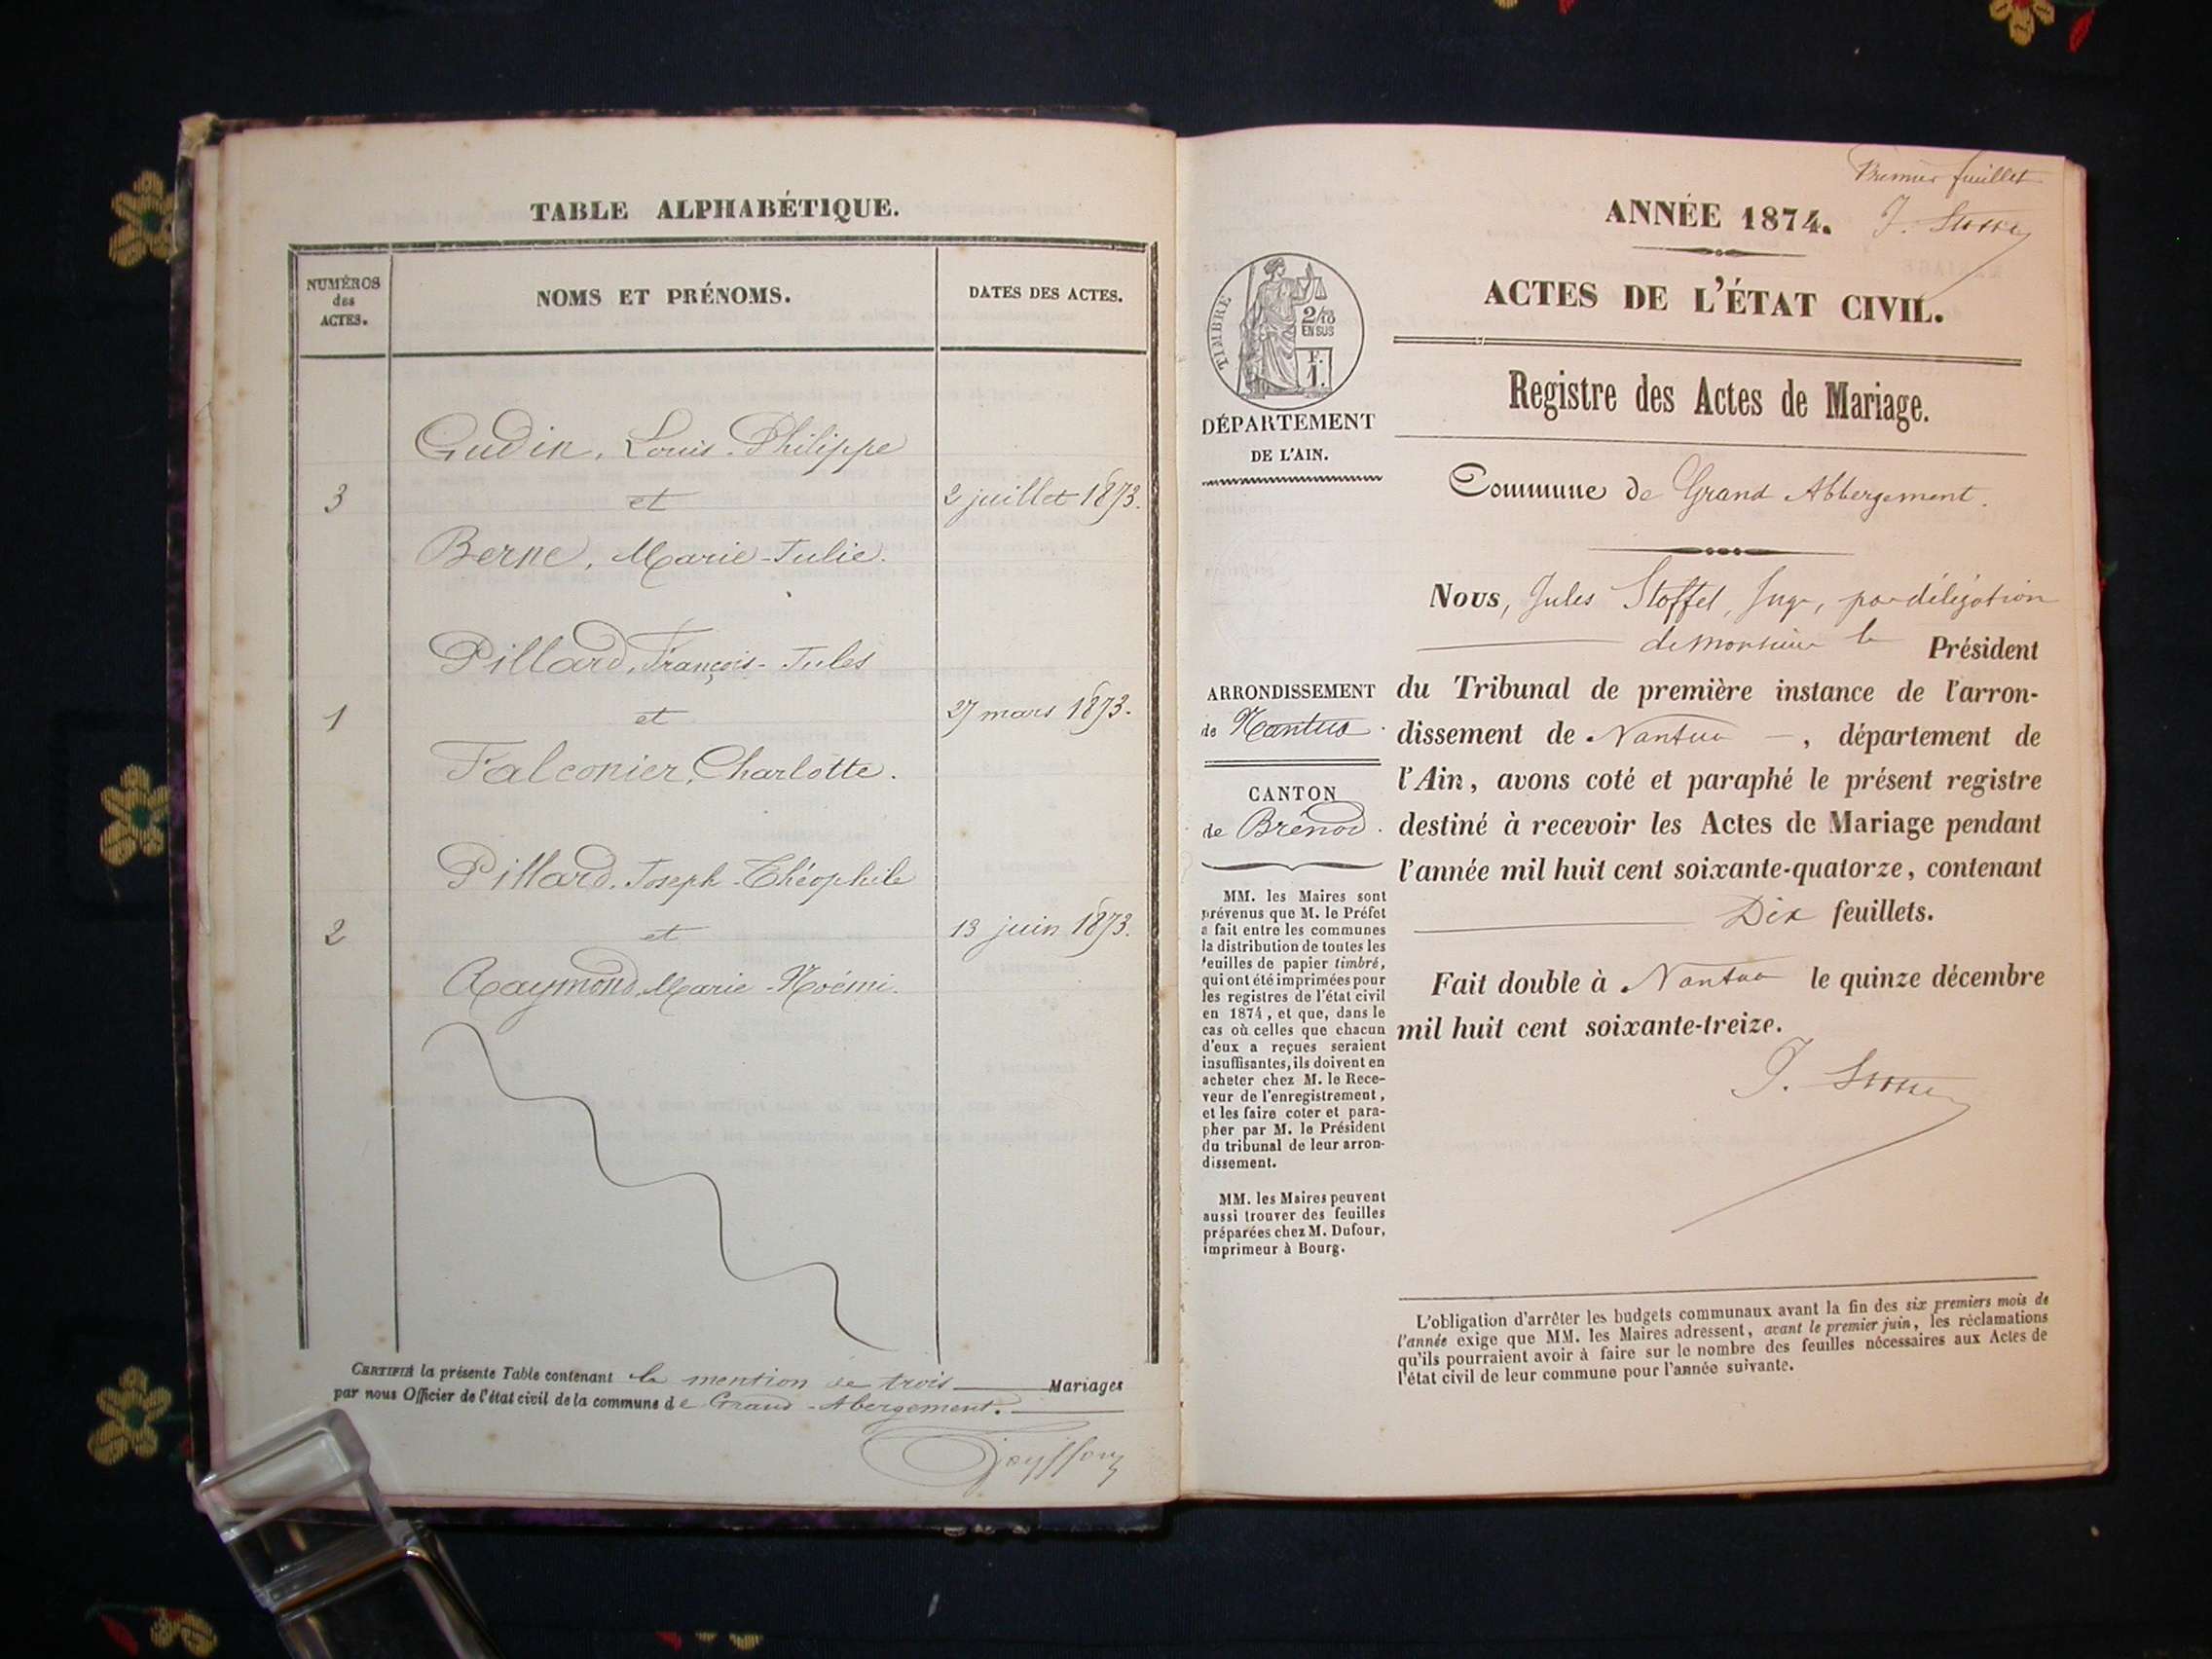 TABLE ALPHABÉTIQUE.
NUMÉROS
des
ACTES.
NOMS ET PRÉNOMS.
DATES DES ACTES.
Gudin, Louis-Philippe
3 et 2 juillet 1873.
Berne, Marie-Julie.
Pillard, François-Jules
1 et 27 mars 1873.
Falconier, Charlotte.
Pillard, Joseph-Théophile
2 et 13 juin 1873.
Raymond, Marie-Noémi.
CERTIFIÉ la présente Table contenant la mention de trois Mariages
par nous Officier de l'état civil de la commune de Grand-Abergement.
Premier feuillet
ANNÉE 1874.
ACTES DE L'ÉTAT CIVIL.
TIMBRE
2/10
EN SUS
F.
1.
DÉPARTEMENT
DE L'AIN.
Registre des Actes de Mariage.
Commune de Grand Abbergement.
Nous, Jules Stoffel, Juge, par délégation
de monsieur le Président
ARRONDISSEMENT
de Nantua.
CANTON
de Brénod.
du Tribunal de première instance de l'arron-
dissement de Nantua, département de
l'Ain, avons coté et paraphé le présent registre
destiné à recevoir les Actes de Mariage pendant
l'année mil huit cent soixante-quatorze, contenant
Dix feuillets.
Fait double à Nantua le quinze décembre
mil huit cent soixante-treize.
MM. les Maires sont
prévenus que M. le Préfet
a fait entre les communes
la distribution de toutes les
feuilles de papier timbré,
qui ont été imprimées pour
les registres de l'état civil
en 1874, et que, dans le
cas où celles que chacun
d'eux a reçues seraient
insuffisantes, ils doivent en
acheter chez M. le Rece-
veur de l'enregistrement,
et les faire coter et para-
pher par M. le Président
du tribunal de leur arron-
dissement.
MM. les Maires peuvent
aussi trouver des feuilles
préparées chez M. Dufour,
imprimeur à Bourg.
L'obligation d'arrêter les budgets communaux avant la fin des six premiers mois de
l'année exige que MM. les Maires adressent, avant le premier juin, les réclamations
qu'ils pourraient avoir à faire sur le nombre des feuilles nécessaires aux Actes de
l'état civil de leur commune pour l'année suivante.